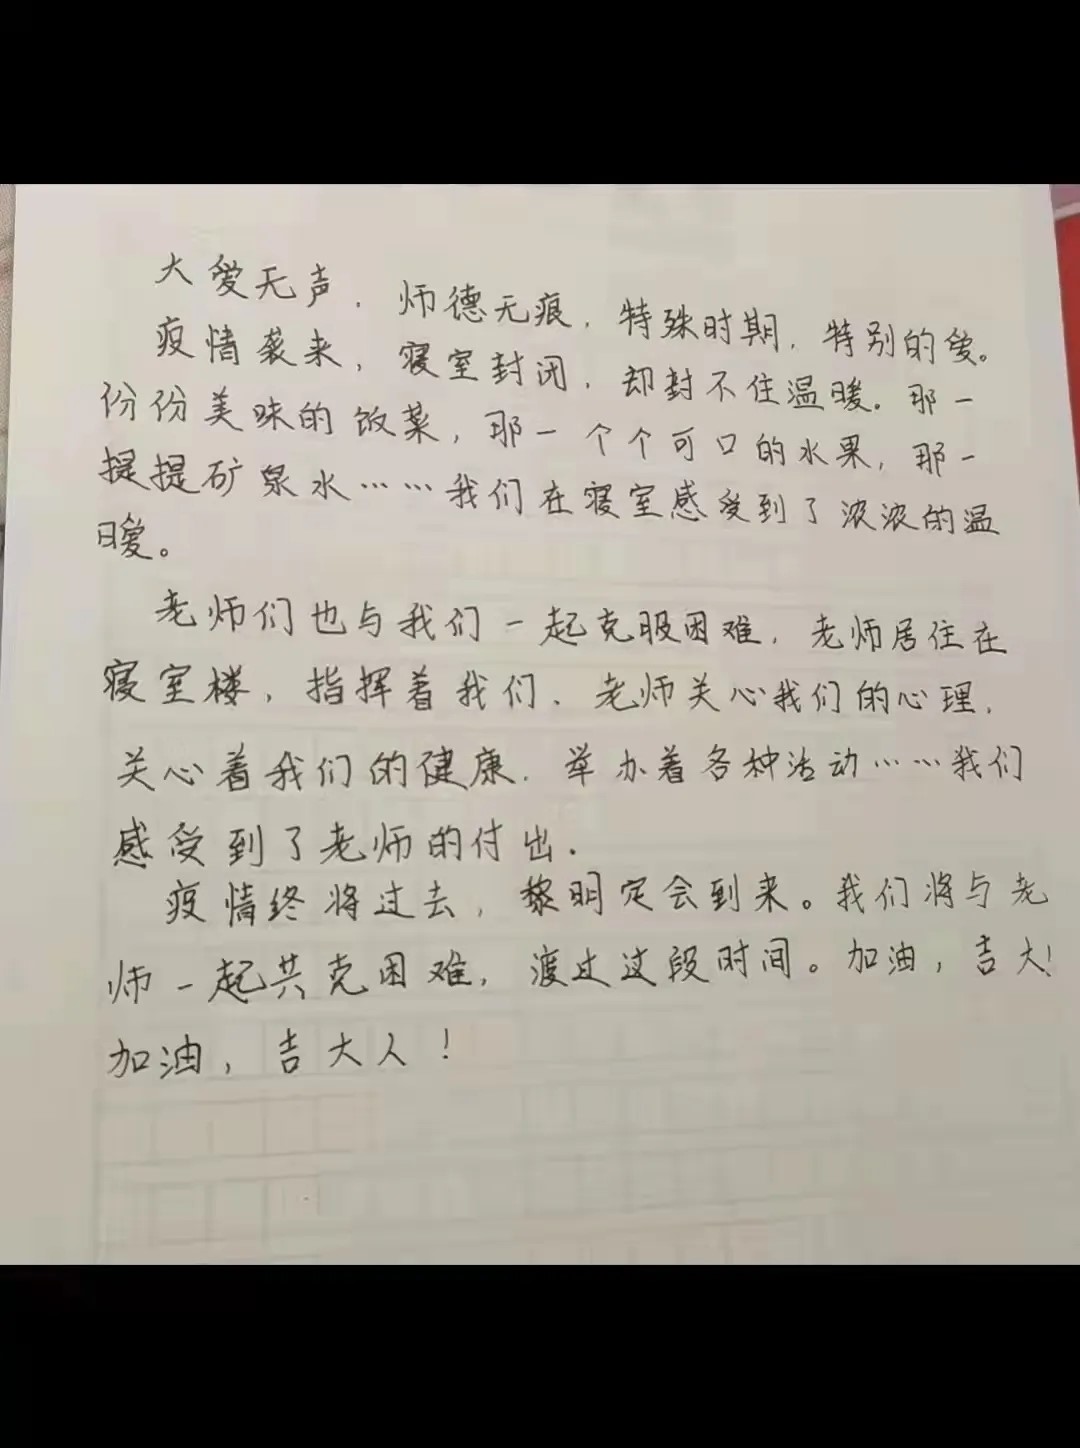 大爱无声，师德无痕，特殊时期，特别的爱。
疫情袭来，寝室封闭，却封不住温暖。那一
份份美味的饭菜，那一个个可口的水果，那一
提提矿泉水……我们在寝室感受到了浓浓的温
暖。
老师们也与我们一起克服困难，老师居住在
寝室楼，指挥着我们、老师关心我们的心理，
关心着我们的健康，举办着各种活动……我们
感受到了老师的付出.
疫情终将过去，黎明定会到来。我们将与老
师一起共克困难，渡过这段时间。加油，吉大！
加油，吉大人！